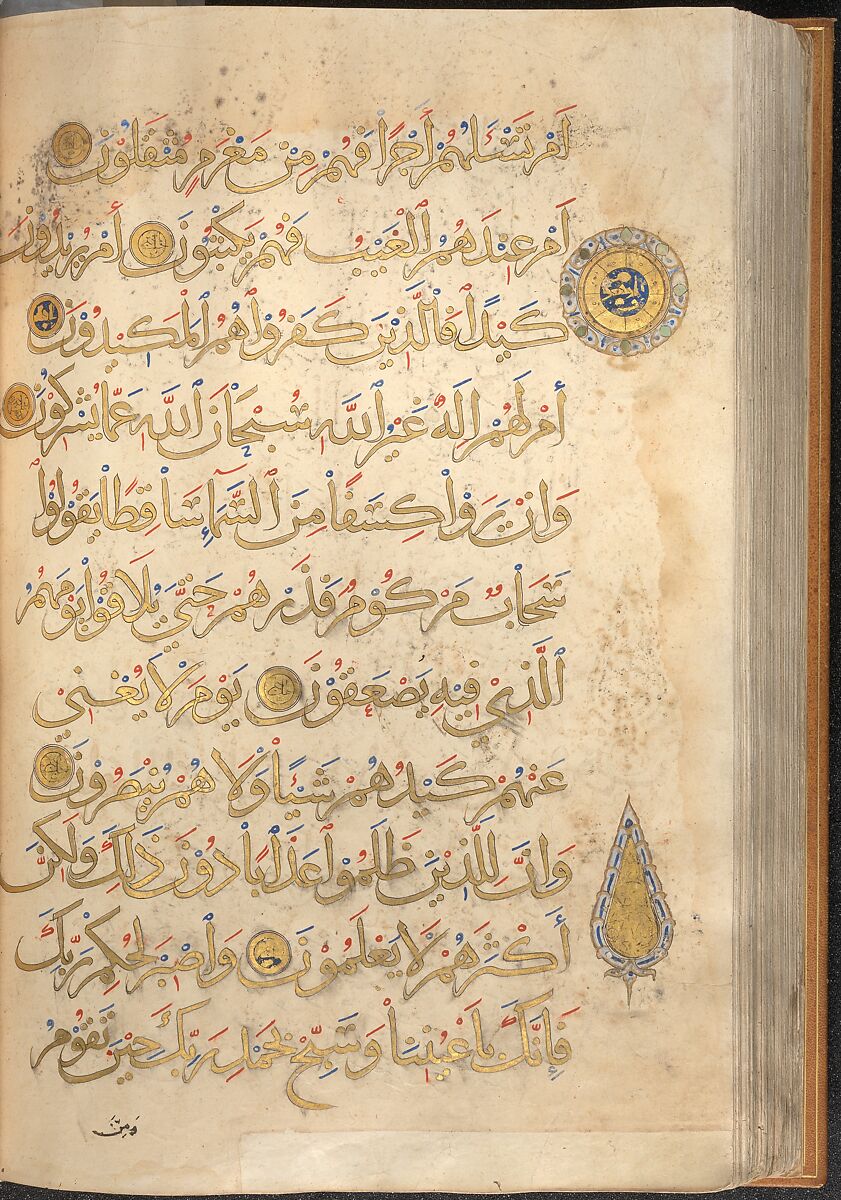 أَمْ تَسْـَٔلُهُمْ أَجْرًا فَهُمْ مِنْ مَغْرَمٍ مُثْقَلُونَ
أَمْ عِنْدَهُمُ الْغَيْبُ فَهُمْ يَكْتُبُونَ أَمْ يُرِيدُونَ
كَيْدًا فَالَّذِينَ كَفَرُوا هُمُ الْمَكِيدُونَ
أَمْ لَهُمْ إِلَهٌ غَيْرُ اللَّهِ سُبْحَانَ اللَّهِ عَمَّا يُشْرِكُونَ
وَإِنْ يَرَوْا كِسْفًا مِنَ السَّمَاءِ سَاقِطًا يَقُولُوا
سَحَابٌ مَرْكُومٌ فَذَرْهُمْ حَتَّى يُلَاقُوا يَوْمَهُمُ
الَّذِي فِيهِ يَصْعَقُونَ يَوْمَ لَا يُغْنِي
عَنْهُمْ كَيْدُهُمْ شَيْئًا وَلَا هُمْ يُنْصَرُونَ
وَإِنَّ لِلَّذِينَ ظَلَمُوا عَذَابًا دُونَ ذَلِكَ وَلَكِنَّ
أَكْثَرَهُمْ لَا يَعْلَمُونَ وَاصْبِرْ لِحُكْمِ رَبِّكَ
فَإِنَّكَ بِأَعْيُنِنَا وَسَبِّحْ بِحَمْدِ رَبِّكَ حِينَ تَقُومُ
وَمِنَ